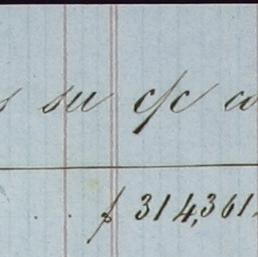 su c/c
$ 314,361.